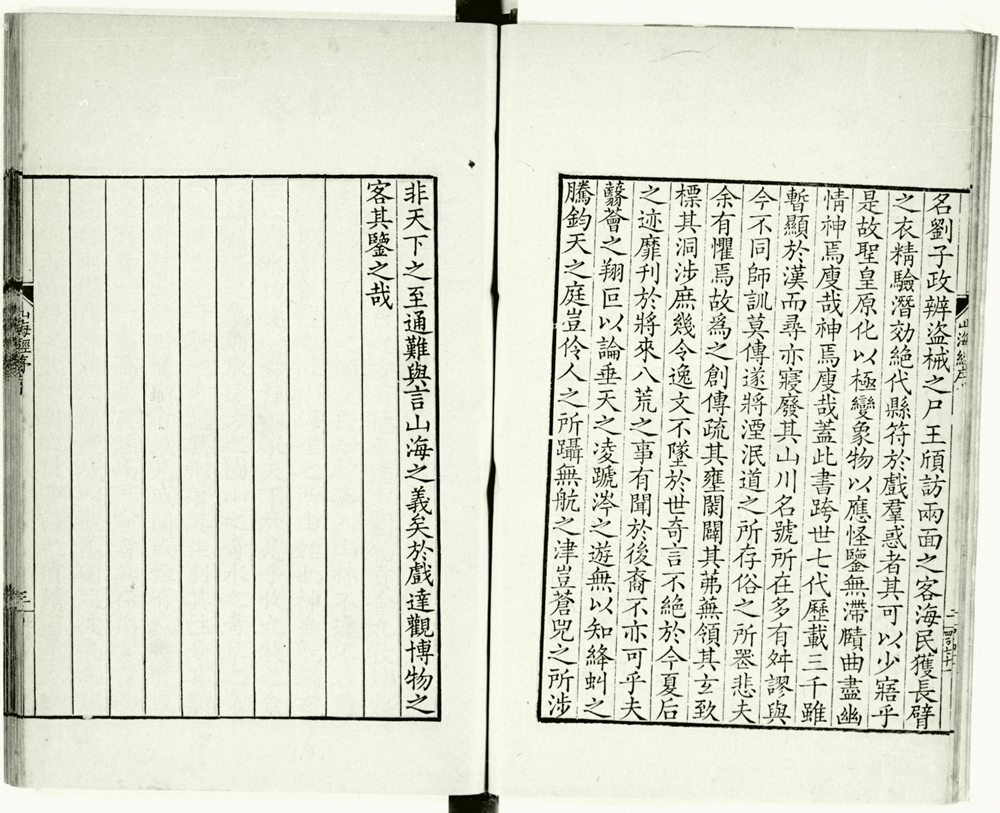 名劉子政辨盜械之尸王頎訪兩面之客海民獲長臂
之衣精驗潛効絶代縣符於戲羣惑者其可以少寤乎
是故聖皇原化以極變象物以應怪鑒無滯賾曲盡幽
情神焉廋哉神焉廋哉蓋此書跨世七代歷載三千雖
暫顯於漢而尋亦寢廢其山川名號所在多有舛謬與
今不同師訓莫傳遂將湮泯道之所存俗之所喪悲夫
余有懼焉故爲之創傳疏其壅閡闢其茀蕪領其玄致
標其洞涉庶幾令逸文不墜於世奇言不絶於今夏后
之迹靡刊於將來八荒之事有聞於後裔不亦可乎夫
蘙薈之翔叵以論垂天之凌蹏涔之遊無以知絳虯之
騰鈞天之庭豈伶人之所躡無航之津豈蒼兕之所涉
山海經序
二
非天下之至通難與言山海之義矣於戲達觀博物之
客其鑒之哉
山海經序
三